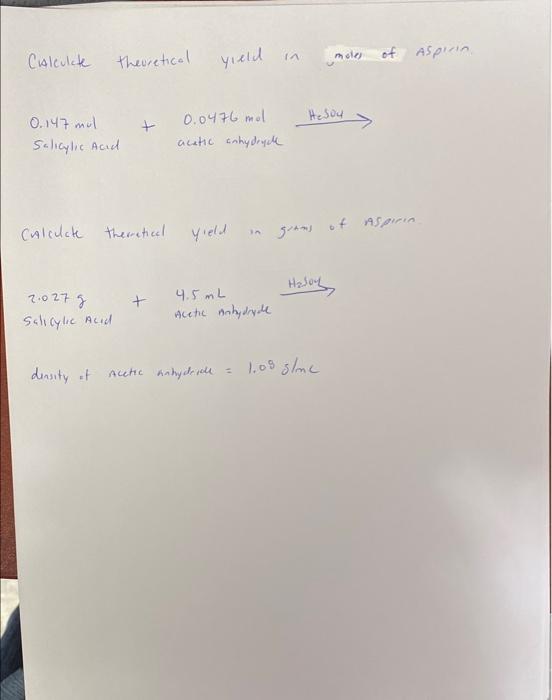 Calculate theoretical yield in moles of Aspirin.
0.147 mol + 0.0476 mol H2SO4
Salicylic Acid acetic anhydryde
Calculate theoretical yield in grams of Aspirin.
2.027 g + 4.5 mL H2SO4
Salicylic Acid Acetic Anhydryde
density of Acetic Anhydride = 1.08 g/mL